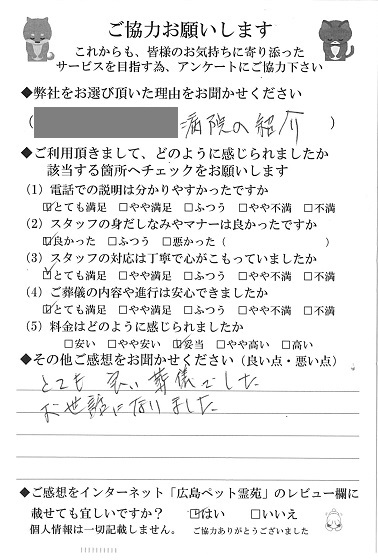 ご協力お願いします
これからも、皆様のお気持ちに寄り添った
サービスを目指す為、アンケートにご協力下さい
◆弊社をお選び頂いた理由をお聞かせください
( 病院の紹介 )
◆ご利用頂きまして、どのように感じられましたか
該当する箇所へチェックをお願いします
(1) 電話での説明は分かりやすかったですか
☑とても満足 □やや満足 □ふつう □やや不満 □不満
(2) スタッフの身だしなみやマナーは良かったですか
☑良かった □ふつう □悪かった ( )
(3) スタッフの対応は丁寧で心がこもっていましたか
☑とても満足 □やや満足 □ふつう □やや不満 □不満
(4) ご葬儀の内容や進行は安心できましたか
☑とても満足 □やや満足 □ふつう □やや不満 □不満
(5) 料金はどのように感じられましたか
□安い □やや安い ☑妥当 □やや高い □高い
◆その他ご感想をお聞かせください (良い点・悪い点)
とても良い葬儀でした
お世話になりました
◆ご感想をインターネット「広島ペット霊苑」のレビュー欄に
載せても宜しいですか? ☑はい □いいえ
個人情報は一切記載しません。 ご協力ありがとうございました